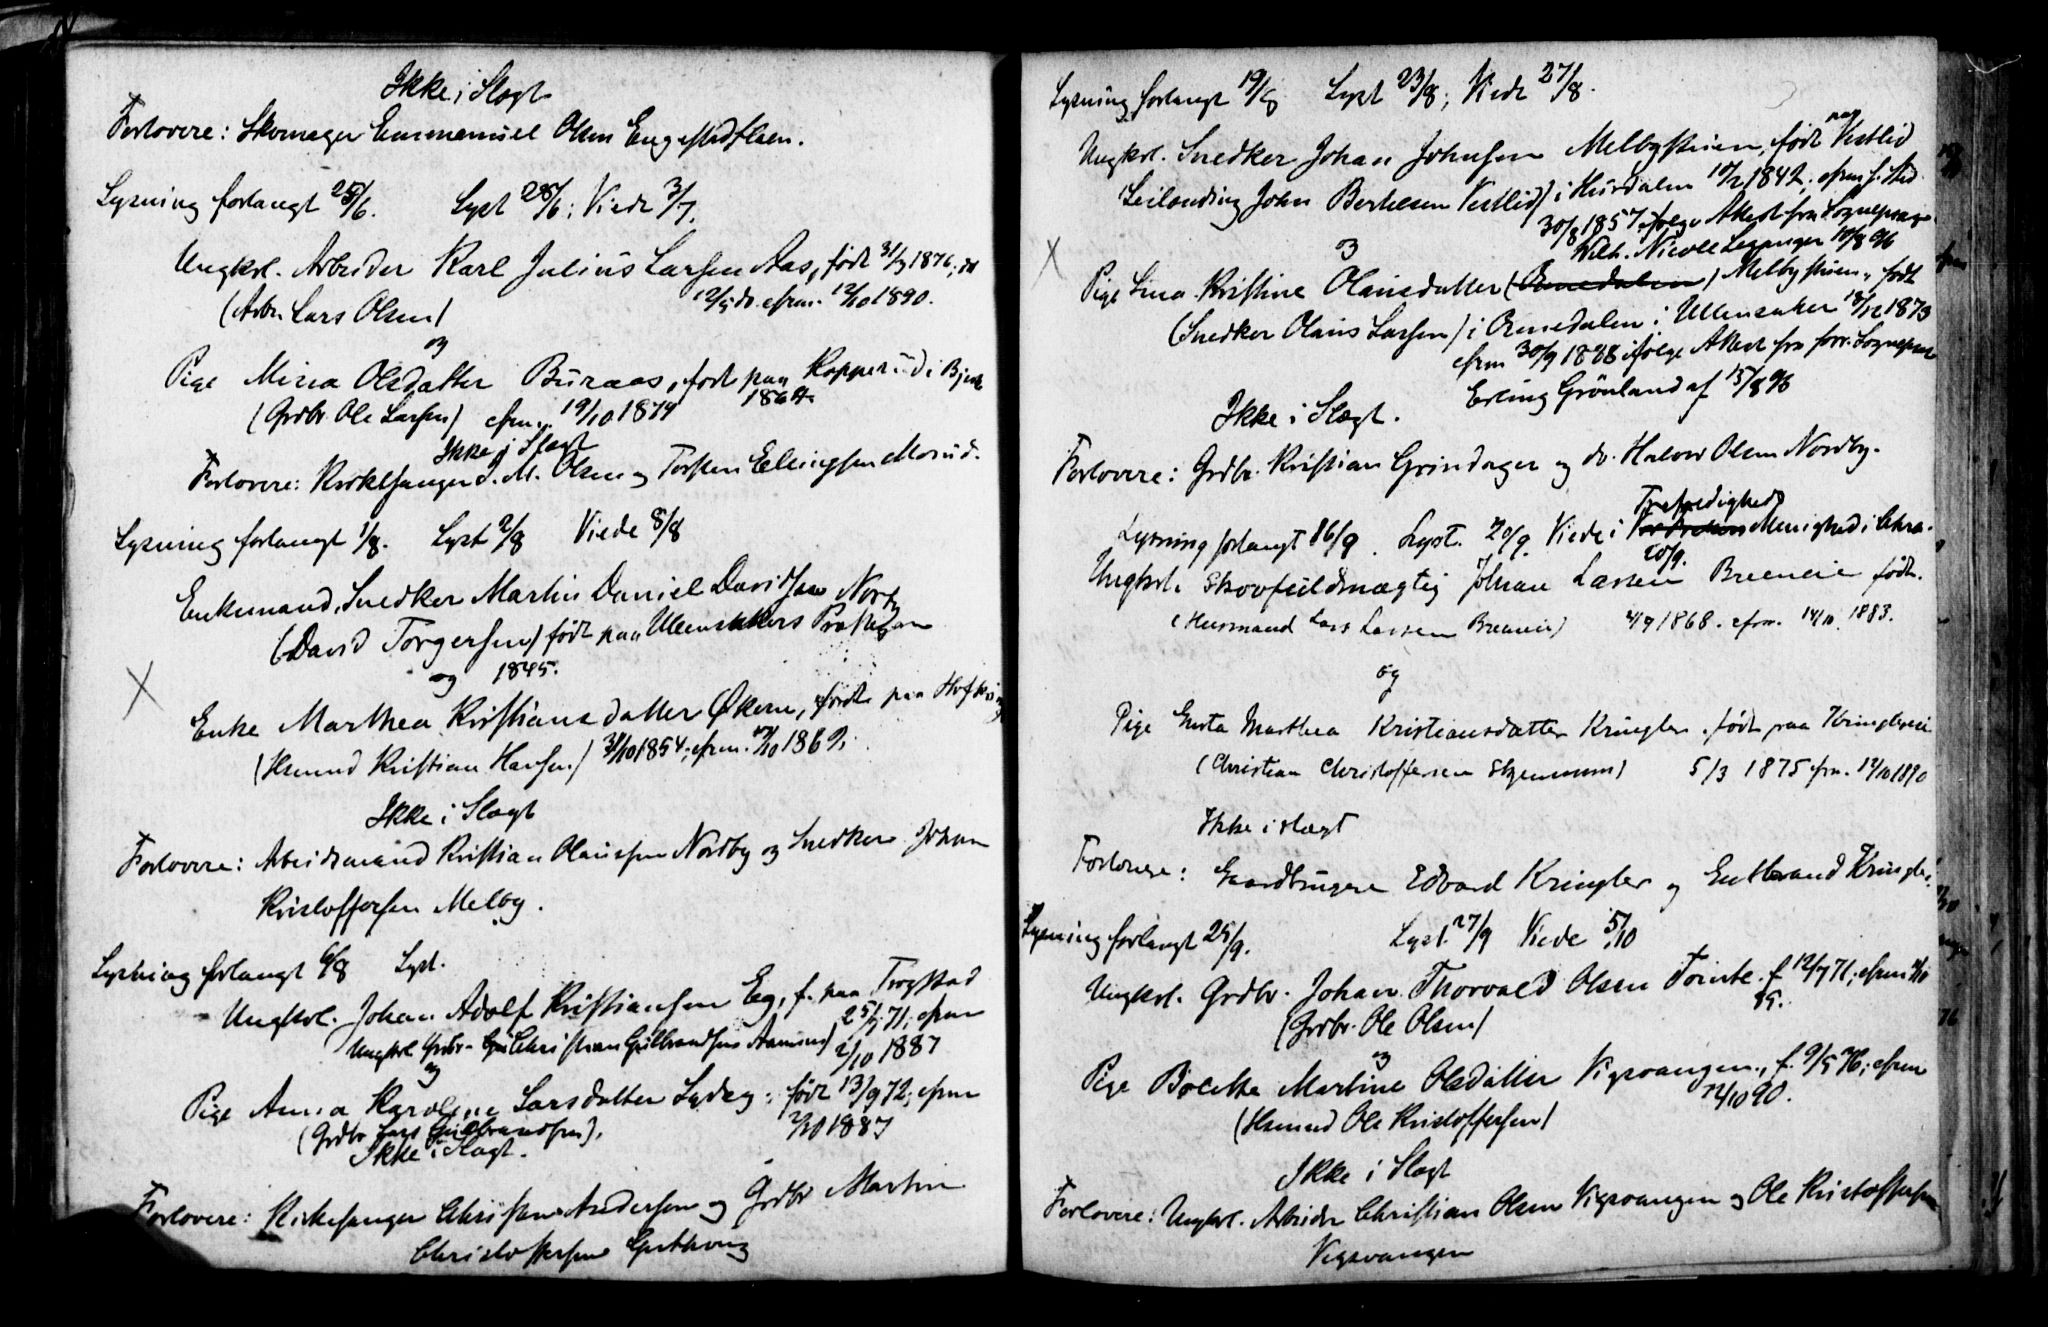 Ikke i Slægt
Forlovere: Skomager Emmanuel Olsen
Lysning forlangt 25/6. Lyst 28/6; Viede 3/7.
Ungkrl. Arbeider Karl Julius Larsen Aas, født 31/3 1876; dt
(Arb. Lars Olsen) 12/5 do. cfrm. 12/10 1890.
og
Pige Mina Olsdatter Buraas, født paa i
(Grdbr. Ole Larsen) cfrm. 19/10 1879 1864
Ikke i Slægt
Forlovere: Kirkesanger J. M. Olsen og Torsten Ellingsen Morud.
Lysning forlangt 1/8. Lyst 2/8 Viede 8/8
Enkemand, Snedker Martin Daniel Davidsen Nordby
(David Torgersen) født paa Ullensakers Præstegaard
og 1845.
Enke Marthea Kristiansdatter Økern, født paa
(Husmd Kristian Hansen) 31/10 1854; cfrm. 10/10 1869;
Ikke i Slægt
Forlovere: Arbeidsmand Kristian Olaussen Nordby og Snedker Johan
Kristoffersen Melby.
Lysning forlangt 6/8 Lyst.
Ungkrl. Johan Adolf Kristiansen Eeg, f. paa Trogstad
25/5 71; cfrm
Ungkrl Grdbr. Christian Gulbrandsen Aamund) 2/10 1887
og
Pige Anna Karoline Larsdatter Lydey; født 13/9 72; cfrm
(Grdbr Lars Gulbrandsen). 2/10 1887
Ikke i Slægt.
Forlovere: Kirkesanger Christian Andersen og Grdbr Martin
Christoffersen
Lysning forlangt 19/8 Lyst 23/8; Viede 27/8.
Ungkrl. Snedker Johan Johnsen Melbystuen, født paa Vestlid
(Leilending John Bertelsen Vestlid) i Hurdalen 10/2 1842; cfrm s. Sted
30/8 1857 ifølge Attest fra Sogneprest
Wilh. Nicoll Leganger 10/8 96
og
Pige Lina Kristine Olausdatter (Rømedalen) Melbystuen, født
(Snedker Olaus Larsen) i Rømedalen i Ullensaker 18/12 1873
cfrm 30/9 1888 ifølge Attest fra forr. Sogneprest
Erling Grönland af 15/8 96
Ikke i Slægt.
Forlovere: Grdbr. Kristian Grindager og do. Halvor Olsen Nordby.
Lysning forlangt 16/9. Lyst. 20/9. Viede i Trefoldigheds Menighed i Chra.
20/9.
Ungkrl. Skovfuldmægtig Johan Larsen Breeneie født.
(Husmand Lars Larsen Breeneie) 4/9 1868. cfrm. 14/10. 1883.
og
Pige Gusta Marthea Kristiansdatter Kringler. født paa Kringlereie
(Christian Christoffersen) 5/3 1875 cfrm. 12/10 1890
Ikke i slægt
Forlovere: Gaardbruger Edvard Kringler og Gulbrand Kringler.
Lysning forlangt 25/9. Lyst. 27/9 Viede 5/10
Ungkrl. Grdbr. Johan Thorvald Olsen Tømte. f. 12/7 71; cfrm 4/10
85.
(Grdbr. Ole Olsen)
og
Pige Bolette Martine Olsdatter Vigsvangen., f. 9/5 76; cfrm
12/10 90.
(Husmd Ole Kristoffersen)
Ikke i Slægt
Forlovere: Ungkrl. Arbeider Christian Olsen Vigsvangen og Ole Kristoffersen
Vigsvangen